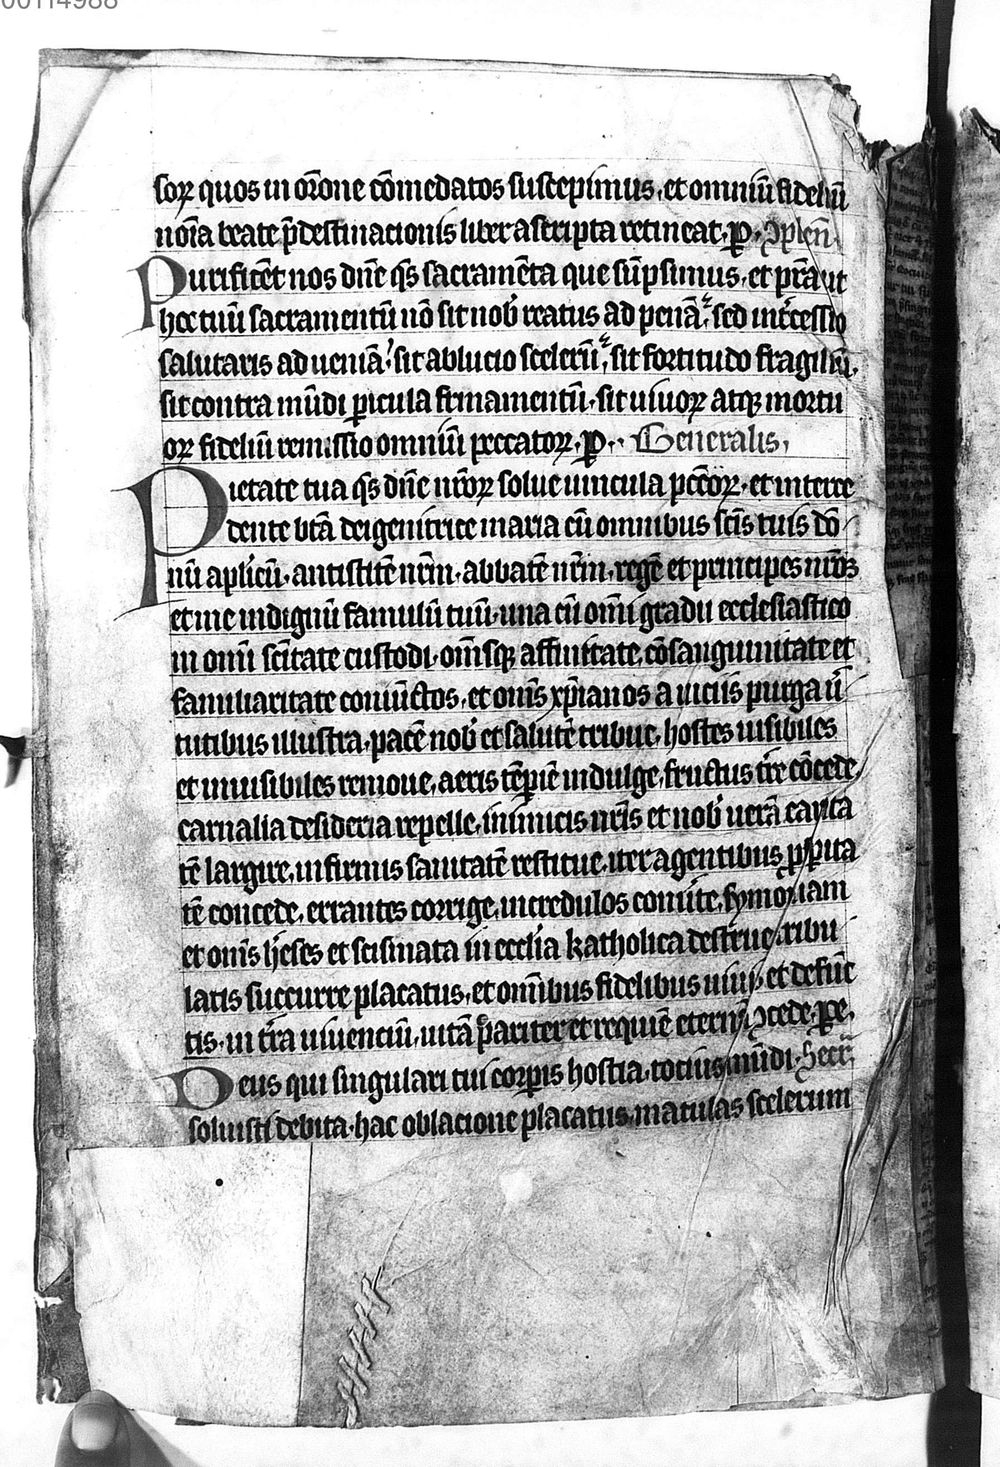 00114988
soꝝ quos in or̄one cōmedatos suscepimus, et omniū fideliū
nōia beate p̄destinacionis liber ascripta retineat. p. ꝯplen̄.
Purificēt nos dn̄e q̄s sacramēta que sūpsimus, et p̄ra ut
hoc tuū sacramentū nō sit nob̄ reatus ad penā: sed int̄cessio
salutaris ad ueniā: sit ablucio scelerū: sit fortitudo fragiliū,
sit contra mūdi ꝑicula firmamentū. sit uiuoꝝ atqꝫ mortu
oꝝ fideliū remissio omniū peccatoꝝ. p. Generalis,
Pietate tua q̄s dn̄e nr̄oꝝ solue uincula pcc̄oꝝ. et interce
dente btā dei genitrice maria cū omnibus scīs tuis dō
nū aplicū. antistitē nr̄m. abbatē nr̄m. regē et principes nr̄os
et me indignū famulū tuū. una cū om̄i gradu ecclesiastico
in om̄i sc̄itate custodi. om̄isqꝫ affinitate, cōsanguinitate et
familiaritate coniūctos, et om̄is xp̄ianos a uiciis purga ū
tutibus illustra, pacē nob̄ et salutē tribue, hostes uisibiles
et inuisibiles remoue, aeris tēpiē indulge, fructus tr̄e cōcede,
carnalia desideria repelle, inimicis nr̄is et nob̄ uerā carita
tē largire, infirmis sanitatē restitue, iter agentibus ꝓspita
tē concede, errantes corrige, incredulos conūte, symoniam
et om̄is h̄eses et scismata in eccl̄ia katholica destrue, tribu
latis succurre placatus, et om̄ibus fidelibus uiuis et defūc
tis. in t̄ra uiuenciū, uitā pariter et requiē eternā ꝯcede. Pe.
Deus qui singulari tui corꝑis hostia, tocius mūdi. Secr̄.
soluisti debita. hac oblacione placatus, maculas scelerum